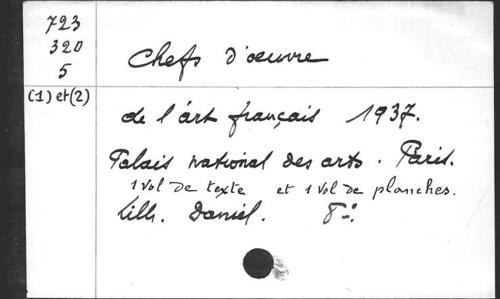 723
320
5
(1) et (2)
Chefs d'œuvre
de l'art français 1937.
Palais national des arts. Paris.
1 vol de texte et 1 vol de planches.
Lill. Daniel. 8º.